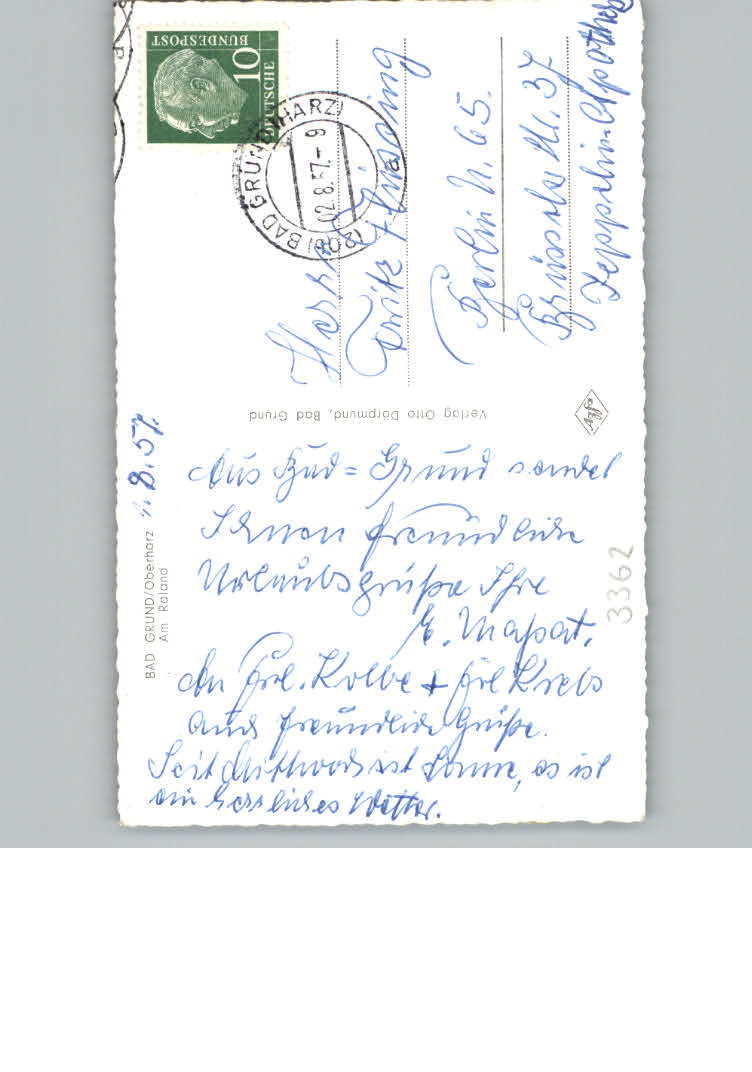 1.8.57.
BAD GRUND/Oberharz
Am Roland
Aus Bad=Grund sendet
Ihnen freundliche
Urlaubsgrüße Ihre
E. Maßat.
An Frl. Kolbe + Frl Krebs
auch freundliche Grüße.
Seit Mittwoch ist Sonne, es ist
ein herrliches Wetter.
Verlag Otto Dörpmund, Bad Grund
3362
DEUTSCHE
BUNDESPOST
10
(20b) BAD GRUND (HARZ)
02.8.57.-9
a
Herrn
Fritz
Berlin N. 65.
Brüsseler Str. 37
Zeppelin-Apotheke